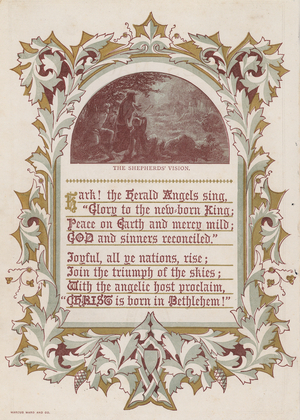 THE SHEPHERDS' VISION.
Hark! the Herald Angels sing,
"Glory to the new-born King;
Peace on Earth and mercy mild;
GOD and sinners reconciled."
Joyful, all ye nations, rise;
Join the triumph of the skies;
With the angelic host proclaim,
"CHRIST is born in Bethlehem!"